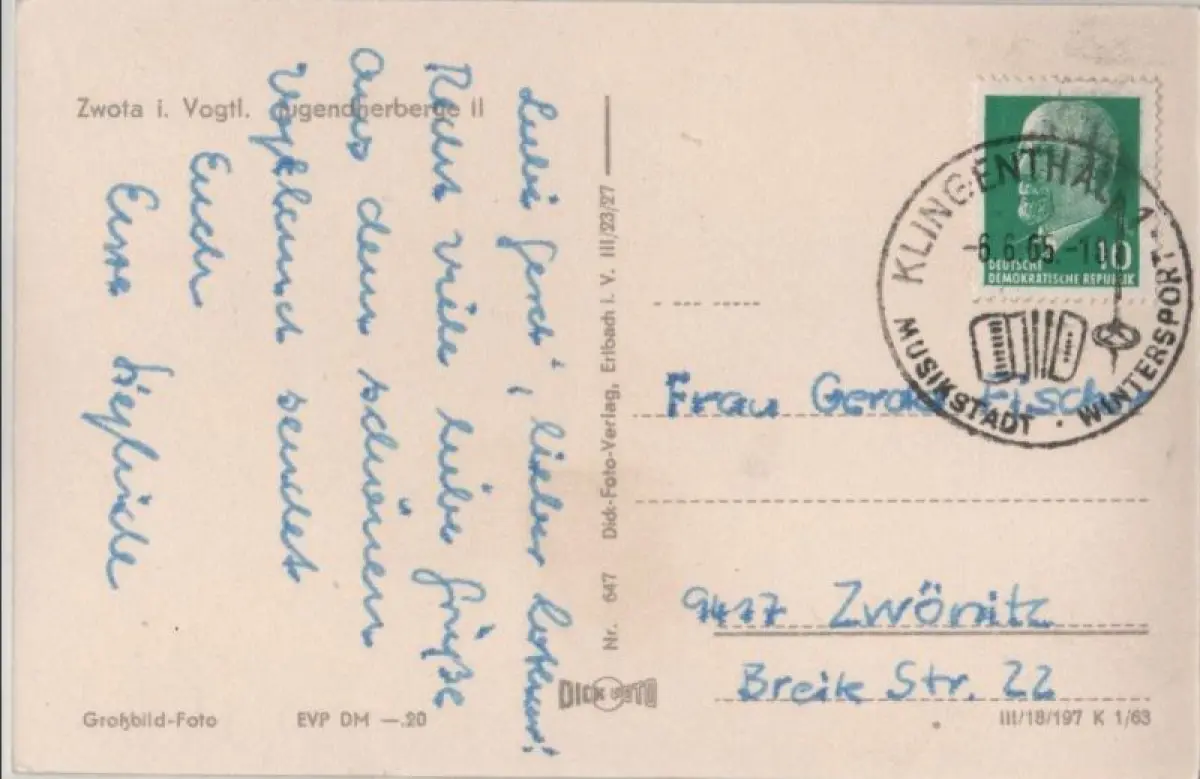 Zwota i. Vogtl. Jugendherberge II
lieber Lothar!
Recht viele liebe Grüße
aus dem schönen
Vogtland sendet
Euch
Eure Sieglinde
Nr. 647 Dick-Foto-Verlag, Erlbach i. V. III/23/27
DICK FOTO
Großbild-Foto
EVP DM —.20
DEUTSCHE
DEMOKRATISCHE REPUBLIK
10
KLINGENTHAL 1
-6.6.65.-
MUSIKSTADT · WINTERSPORT
Frau Gerda Fischer
9417 Zwönitz
Breite Str. 22
III/18/197 K 1/63